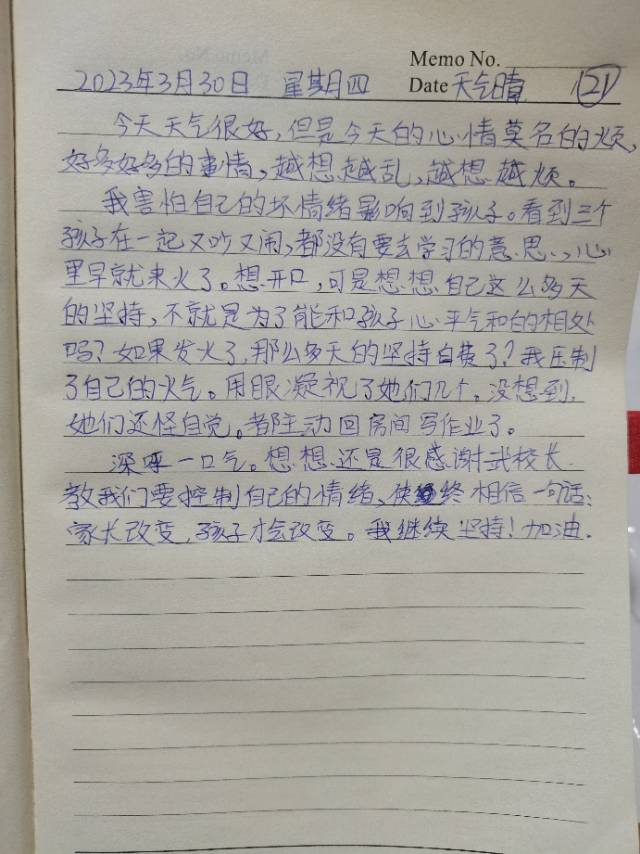 Memo No.
2023年3月30日 星期四 Date 天气晴 21
今天天气很好,但是今天的心情莫名的烦,
好多好多的事情,越想越乱,越想越烦。
我害怕自己的坏情绪影响到孩子。看到三个
孩子在一起又吵又闹,都没有要去学习的意思,心
里早就来火了。想开口,可是想想自己这么多天
的坚持,不就是为了能和孩子心平气和的相处
吗?如果发火了,那么多天的坚持白费了?我压制
了自己的火气。用眼凝视了她们几个。没想到,
她们还怪自觉。都主动回房间写作业了。
深呼一口气。想想还是很感谢武校长
教我们要控制自己的情绪,使终相信一句话:
家长改变,孩子才会改变。我继续坚持!加油.